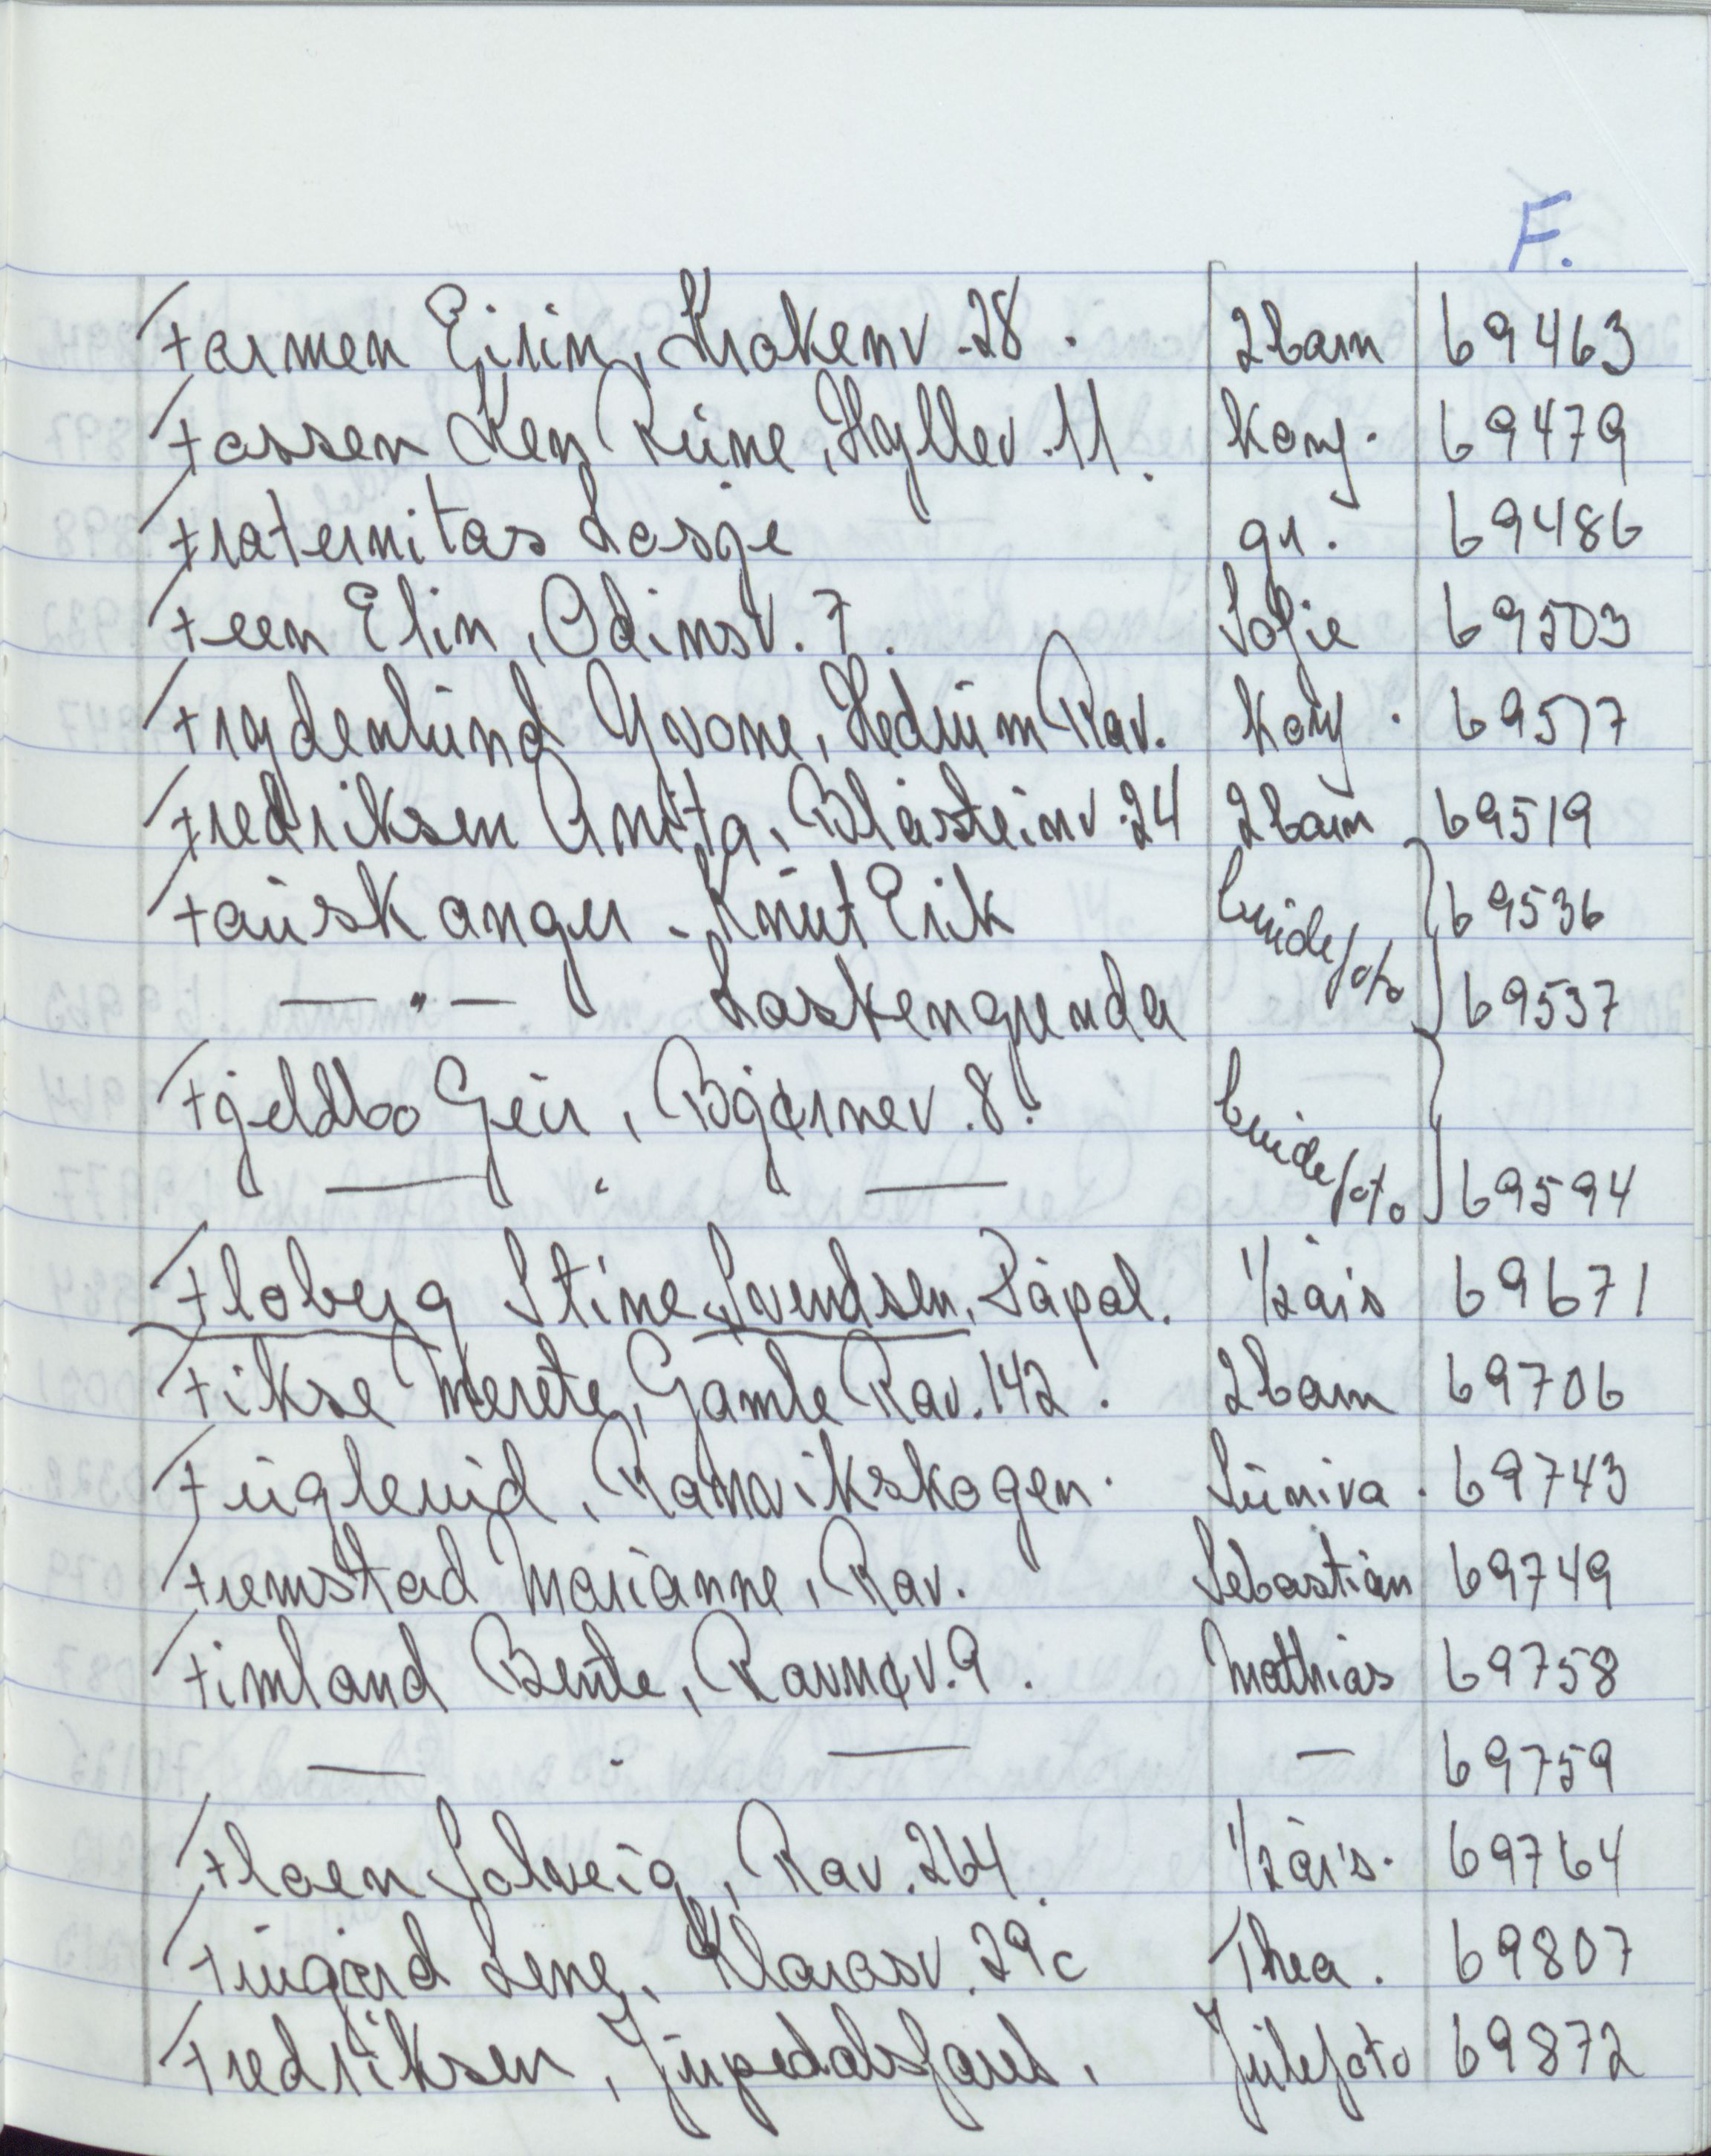 F.
Farmen Eirin, Krokenv. 28. 2 barn 69463
Fassen Ken Rune, Hyllev. 11. Konf. 69479
Fraternitas Losje gr. 69486
Feen Elin, Odinsv. 7. Sofie 69503
Frydenlund Yvone, Hedrum Rav. Konf. 69517
Fredriksen Anita, Blåsteinv. 24 2 barn 69519
Fauskanger - Knut Erik brudefoto 69536
— " — Laskengrenda 69537
Fjeldbo Geir, Bjørnev. 8. brudefoto
— " — 69594
Floberg Stine Svendsen, Råpal. 1/2 års 69671
Fikse Merete, Gamle Rav. 142. 2 barn 69706
Fuglerud, Ranvikskogen. Sunniva. 69743
Fremstad Marianne, Rav. Sebastian 69749
Fimland Bente, Ravnøv. 9. Mathias 69758
— " — — 69759
Floen Solveig, Rav. 264. 1/2 års. 69764
Furgård Lene, Klarasv. 29c Thea. 69807
Fredriksen, Jupedalsfaret. Julefoto 69872